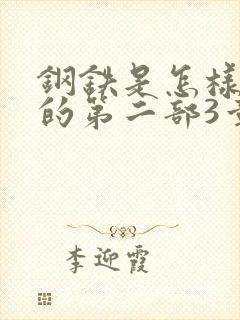 鋼鉄是怎樣
的第二部3章
李迎霞